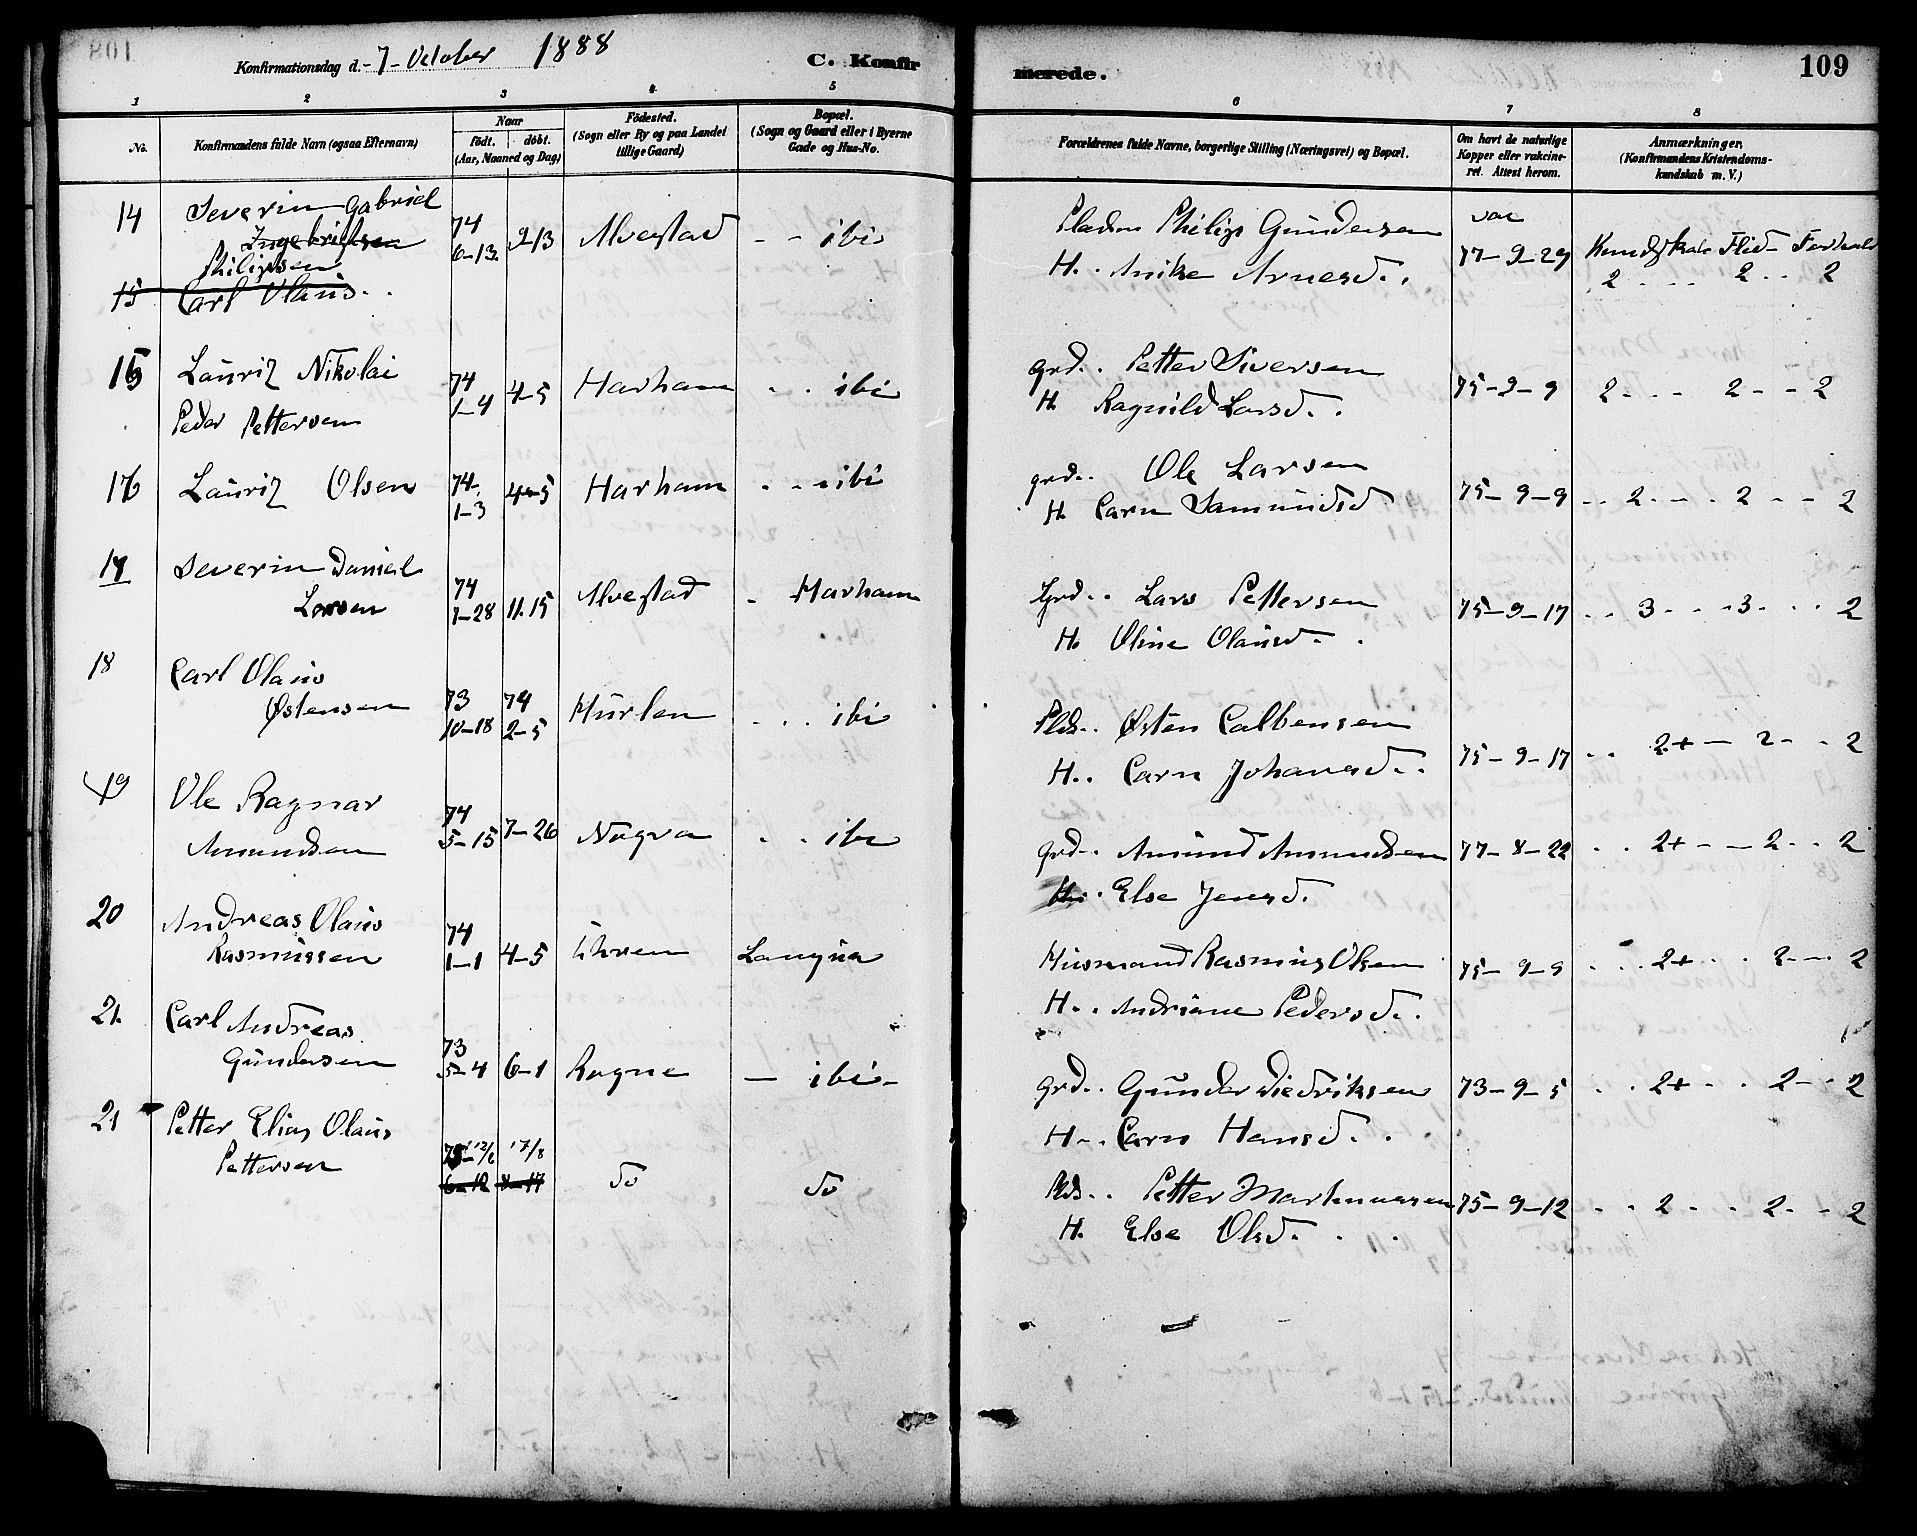 Konfirmationsdag d. 7 October 1888 C. Konfir merede. 109
1 2 3 4 5 6 7 8
No. Konfirmandens fulde Navn (ogsaa Efternavn) Naar født. døbt. (Aar, Maaned og Dag) Fødested. (Sogn eller By og paa Landet tillige Gaard) Bopæl. (Sogn og Gaard eller i Byerne Gade og Hus-No. Forældrenes fulde Navne, borgerlige Stilling (Næringsvei) og Bopæl. Om havt de naturlige Kopper eller vakcineret. Attest herom. Anmærkninger. (Konfirmandens Kristendomskundskab m. V.)
14 Severin Gabriel 74 Philip Gundersen vac
Ingebrigtsen 6-13 2/3 Alvestad - - ibi 77-9-29 Kundskab Flid
Philipsen H. Anike Arnesd. 2 2 2
15 Carl Olaus
15 Lauritz Nikolai 74 grd. Petter Siversen
Peder Pettersen 1-4 4-5 Harham ibi H. Ragnild Larsd. 75-9-9 2 2 2
16 Lauritz Olsen 74 grd. Ole Larsen
1-3 4-5 Harham ibi H. Carn Samundsd 75-9-9 2 2 2
17 Severin Daniel 74 Grd. Lars Pettersen
Larsen 7-28 11.15 Alvestad Harham H. Oline Olausd. 75-9-17 3 3 2
18 Carl Olaus 73 74 Plds. Østen
Østensen 10-18 2-5 Hurlen ibi H. Carn Johansd. 75-9-17 2+ 2 2
19 Ole Ragnar 74 grd. Amund Amundsen
Amundsen 5-15 7-26 Nogva ibi H. Else Jensd. 77-8-22 2+ 2 2
20 Andreas Olaus 74 Husmand Rasmus Olsen
Rasmussen 1-1 4-5 Uhrem Longva H. Andriane Pedersd. 75-9-9 2+ 2 2
21. Carl Andreas 73 grd. Gunder Diedriksen
Gundersen 5-4 6-1 Rogne - ibi - H. Carn Hansd. 73-9-5 2+ 2 2
21 Petter Elias Olaus 12/6 17/8 Plds. Petter
Pettersen 6-12 8-17 do do H. Else Olsd. 75-9-12 2 2 2